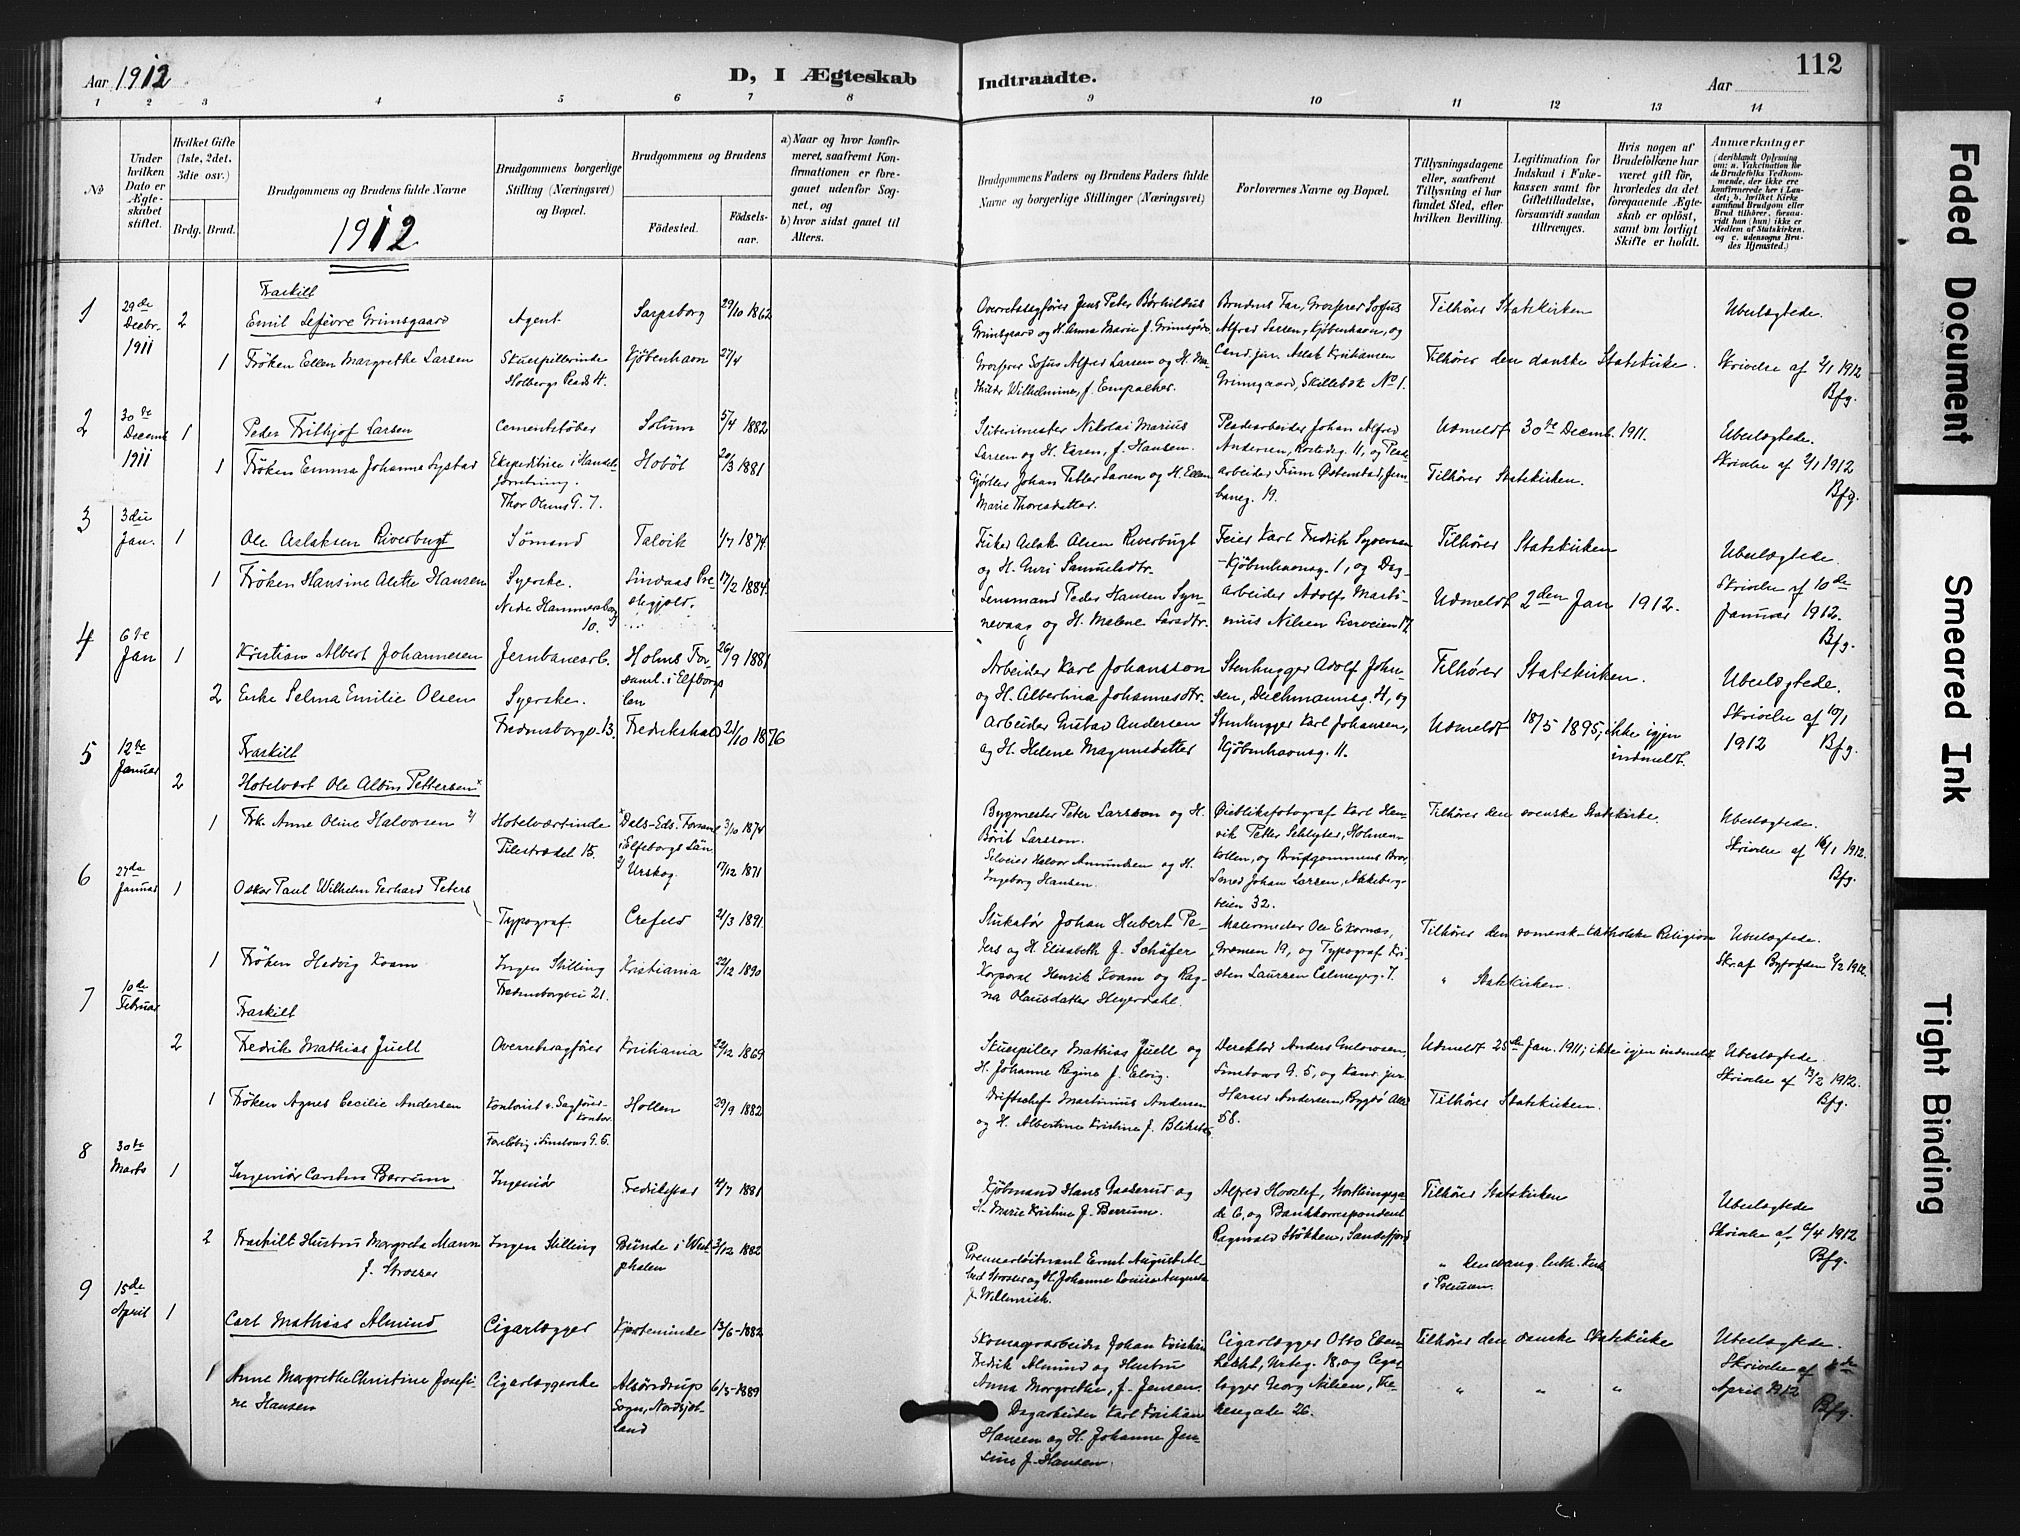 Aar 1912
D, I Ægteskab
Indtraadte.
Aar
112
1 2 3 4 5 6 7 8 9 10 11 12 13 14
No
Under hvilken Dato er Ægteskabet stiftet.
Hvilket Gifte (1ste, 2det, 3die osv.)
Brdg. Brud.
Brudgommens og Brudens fulde Navne
1912
Brudgommens borgerlige Stilling (Næringsvei) og Bopæl.
Brudgommens og Brudens
Fødested.
Fødselsaar.
a) Naar og hvor konfirmeret, saafremt Konfirmationen er foregaaet udenfor Sognet, og
b) hvor sidst gaaet til Alters.
Brudgommens Faders og Brudens Faders fulde Navne og borgerlige Stillinger (Næringsvei)
Forlovernes Navne og Bopæl.
Tillysningsdagene eller, saafremt Tillysning ei har fundet Sted, efter hvilken Bevilling.
Legitimation for Indskud i Enkekassen samt for Giftetilladelse, forsaavidt saadan tiltrænges.
Hvis nogen af Brudefolkene har været gift før, hvorledes da det foregaaende Ægteskab er opløst, samt om lovligt Skifte er holdt.
Anmærkninger
(deriblandt Oplysning om: a. Vakcination for de Brudefolks Vedkommende, der ikke ere konfirmerede her i Landet; b. hvilket Kirkesamfund Brudgom eller Brud tilhører, forsaavidt han (hun) ikke er Medlem af Statskirken, og c. udensogns Brudes Hjemsted.)
1
29de Decbr. 1911
2
Fraskilt
Emil Lefèvre Grimsgaard
Agent
Sarpsborg
29/10 1862
Overretssagfører Jens Peter
Grimsgaard og H. Anna Marie J.
Brudens Far, Grosserer Sofus
Alfred Larsen, Kjøbenhavn, og
Cand. jur. Aslak Kristiansen
Grimsgaard, Skillebæk No 1.
Tilhører Statskirken
Ubeslægtede.
1
Frøken Ellen Margrethe Larsen
Skuespillerinde
Holbergs Plads 4.
Kjøbenhavn
27/4
Grosserer Sofus Alfred Larsen og H.
Wilhelmine, f. Empacher.
Tilhører den danske Statskirke.
Skrivelse af 2/1 1912
Bfg.
2
30de Decemb 1911
1
Peder Frithjof Larsen
Cementstøber
Solum
5/4 1882
Nikolai Marius
Larsen og H. Karen, f. Hansen.
Johan Alfred
Andersen, 11, og
arbeider
19.
Udmeldt 30te Decemb. 1911.
Ubeslægtede.
1
Frøken Emma Johanne Lystad
Ekspeditrice i Handelsforretning.
Thor Olsens G. 7.
Hobøl
20/3 1881
Gjørtler Johan Petter Larsen og H. Ellen
Marie Thoresdatter.
Tilhører Statskirken.
Skrivelse af 2/1 1912
Bfg.
3
3die Jan.
1
Ole Aslaksen Riverbugt
Sømand
Talvik
1/7 1874
Fisker Aslak Olsen Riverbugt
og H. Guri Samuelsdtr.
Feier Karl Fredrik Syversen
Kjøbenhavnsg. 1, og Dag-
arbeider Adolf Marti-
nius Nilsen 17.
Tilhører Statskirken
Ubeslægtede.
1
Frøken Hansine Alette Hansen
Syerske.
Nedre Hammersborg 10.
Lindaas Præstegjeld.
17/2 1884
Lensmand Peder Hansen Syn-
nevaag og H. Malene Larsdtr.
Udmeldt 2den Jan 1912.
Skrivelse af 10de
Januar 1912.
Bfg.
4
6te Jan
1
Kristian Albert Johannesen
Jernbanearb.
Holms For-
saml. i Elfborgs
Len
26/9 1881
Arbeider Karl Johansson
og H. Albertina Johannesdtr.
Stenhugger Adolf John-
sen, Deichmannsg. 4, og
Stenhugger Karl Johansen,
Kjøbenhavnsg. 11.
Tilhører Statskirken.
Ubeslægtede.
2
Enke Selma Emilie Olsen
Syerske.
Fredensborgv. 13.
Fredrikshald
21/10 1876
Arbeider Gustav Andersen
og H. Helene Magnusdatter
Udmeldt 18/5 1895, ikke igjen
indmeldt.
Skrivelse af 10/1
1912 Bfg.
5
12te Januar
2
Fraskilt
Hotelvært Ole Albin Pettersen x
Dals-Eds Forsaml
i Elfsborgs Län
3/10 1874
Bygmester Peter Larsson og H.
Börit Larsson.
Øiebliksfotograf Karl Hen-
rik Petter Schlyter, Holmen-
kollen, og Brudgommens Bror
Smed Johan Larsen, Akkeberg-
veien 32.
Tilhører den svenske Statskirke.
Ubeslægtede.
1
Frk. Anne Oline Halvorsen
Hotelværtinde
Pilestrædet 15.
Urskog
17/12 1871
Selveier Halvor Amundsen og H.
Ingeborg Hansen.
Skrivelse af 16/1 1912.
Bfg.
6
27de Januar
1
Oskar Paul Wilhelm Gerhard Peters
Typograf
Crefeld
21/3 1891
Stukatør Johan Hubert Pe-
ters og H. Elisabeth J. Schäfer
Malermester Ole Ekornæs,
Grænsen 19, og Typograf Kri-
sten Laursen Calmeyerg. 7.
Tilhører den romersk-katholske Religion
Ubeslægtede.
1
Frøken Hedvig Koam
Ingen Stilling
Fredensborgvei 21.
Kristiania
22/12 1890
Korporal Henrik Koam og Rag-
na Olausdatter Heyerdahl.
" Statskirken.
Skr. af Byfogden 2/2 1912.
7
10de Februar
2
Fraskilt
Fredrik Mathias Juell
Overretssagfører
Kristiania
22/12 1869
Skuespiller Mathias Juell og
H. Johanne Regine f. Elvig.
Direktør Anders
Linstows G. 5, og Kand. jur.
Harald Andersen, Bygdø Allé
58.
Udmeldt 25de Jan. 1911; ikke igjen indmeldt
Ubeslægtede.
1
Frøken Agnes Cecilie Andersen
Kontorist v. Sagførerkontor
Foreløbig i Linstows G. 5.
Hollen
29/9 1882
Driftschef Martinius Andersen
og H. Albertine Kristine J.
Tilhører Statskirken.
Skrivelse af 13/2 1912.
Bfg.
8
30te Marts
1
Ingeniør Carsten Berrum
Ingeniør
Fredrikstad
4/7 1881
Kjøbmand Hans Gasserud og
H. Marie Kristine J. Berrum.
Alfred Storthingsga-
de 6, og Bankkorrespondent
Ragnvald Stokken, Sandefjord
Tilhører Statskirken
Ubeslægtede
2
Fraskilt Hustru Margreta Mann
f. Strosser
Ingen Stilling
Bünde i West
phalen
3/12 1882
Premierløitnant Ernst August Al-
bert Strosser og H. Johanne Louise Augusta
f.
" den evang. luth. Kirk
i Preussen.
Skrivelse af 6/4 1912
Bfg.
9
15de April
1
Carl Mathias Almind
Cigarlægger
Kjerteminde
13/6 1882
Skomagerarbeider Johan Kristian
Fredrik Almind og Hustru
Anna Margrethe, f. Jensen.
Cigarlægger Otto Eben-
recht, Urteg. 18, og Cigar
lægger Georg Nilsen, He-
rsegade 26.
Tilhører den danske Statskirke
Ubeslægtede.
1
Anne Margrethe Christine Josefi-
ne Hansen
Cigarlæggerske
Sogn, Nordsjæl-
land
6/5-1889
Dagarbeider Karl Kristian
Hansen og H. Johanne Jen-
sine f. Hansen.
" " "
Skrivelse af
April 1912
Bfg.
Faded Document
Smeared Ink
Tight Binding